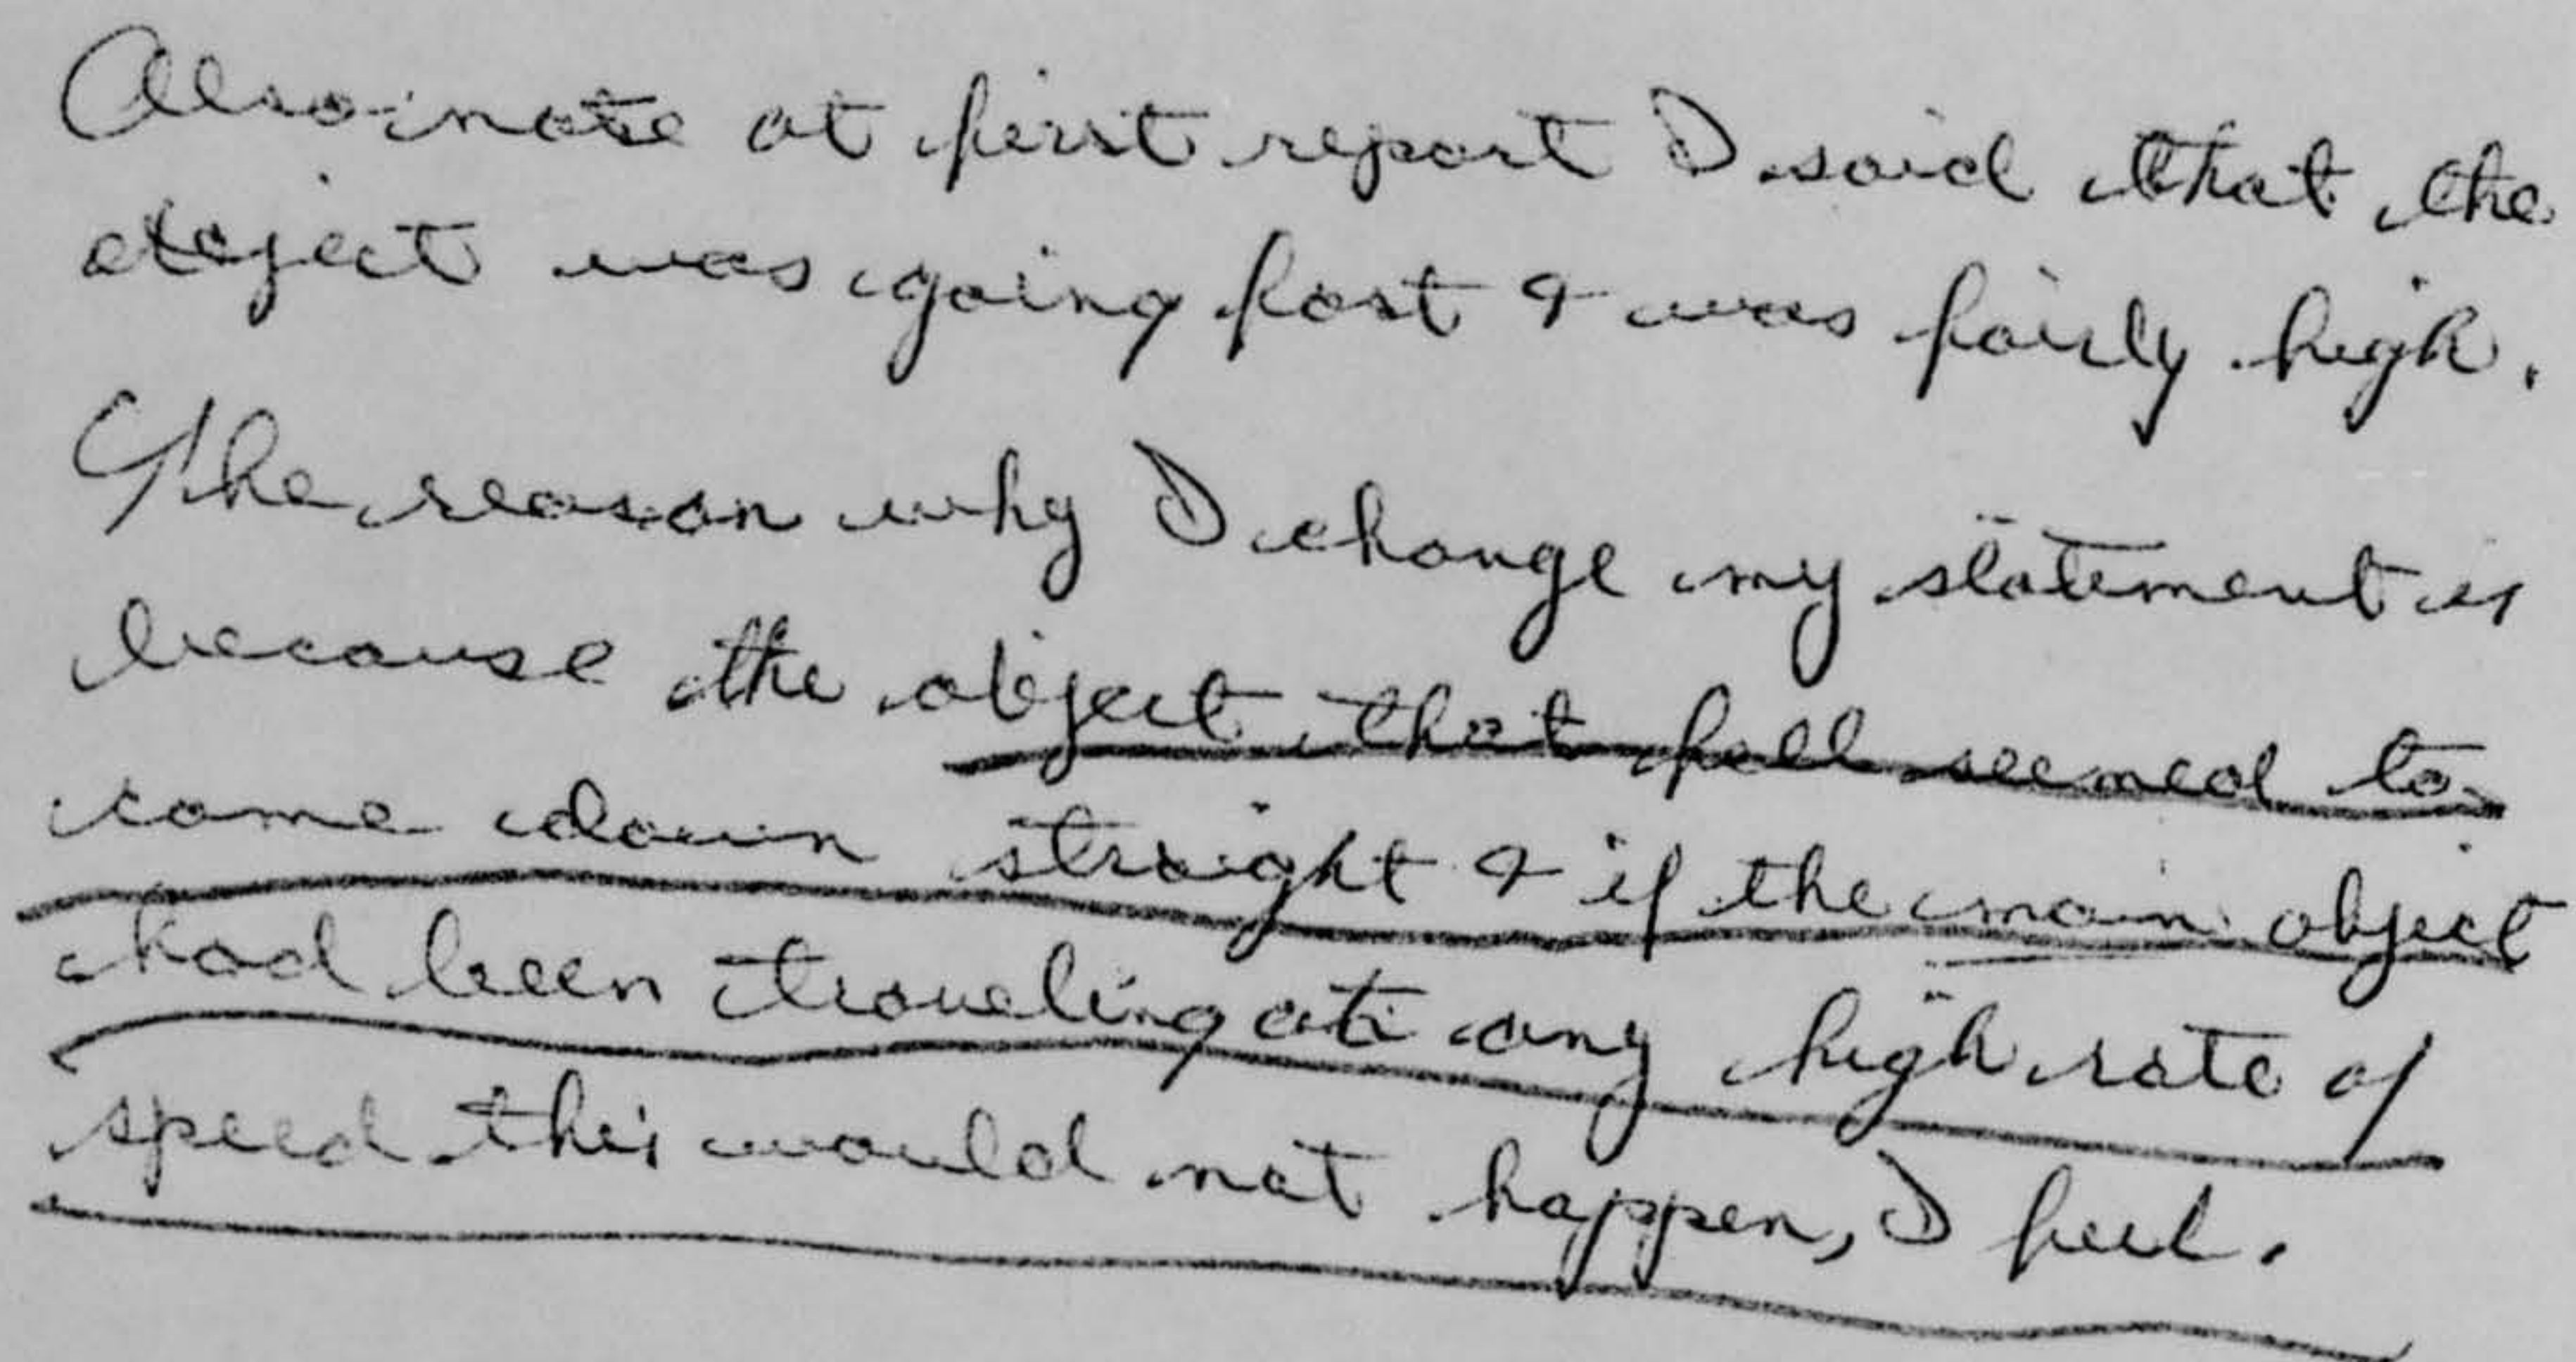 Also note at first report I said that the
object was going fast & was fairly high.
The reason why I change my statement is
because the object that fell seemed to
come down straight & if the main object
had been traveling at any high rate of
speed this would not happen, I feel.